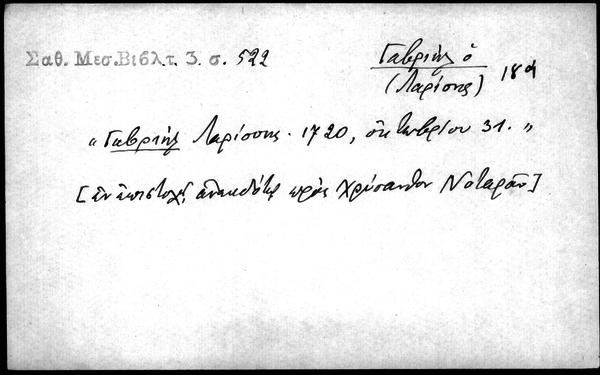 Σαθ. Μεσ.Βιβλ.τ. 3. σ. 522
Γαβριὴλ ὁ
(Λαρίσης) 18α
"Γαβριὴλ Λαρίσσης. 1720, ὀκτωβρίου 31."
[ἐν ἐπιστολῇ ἀνεκδότῳ πρὸς Χρύσανθον Νοταρᾶν]